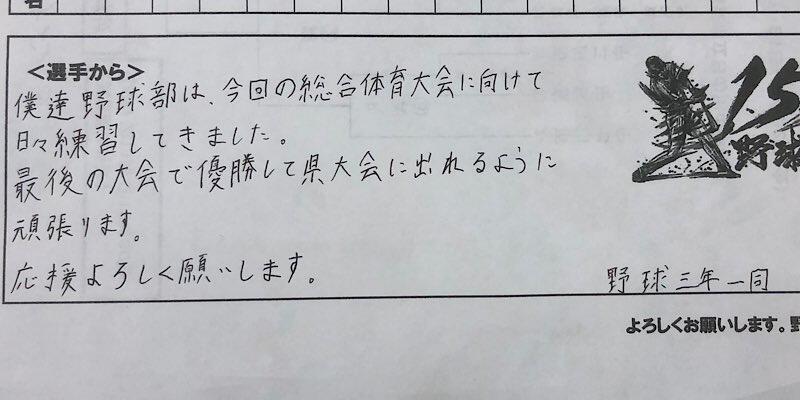 名
<選手から>
僕達野球部は、今回の総合体育大会に向けて
日々練習してきました。
最後の大会で優勝して県大会に出れるように
頑張ります。
応援よろしく願いします。
野球三年一同
15
野球
よろしくお願いします。野